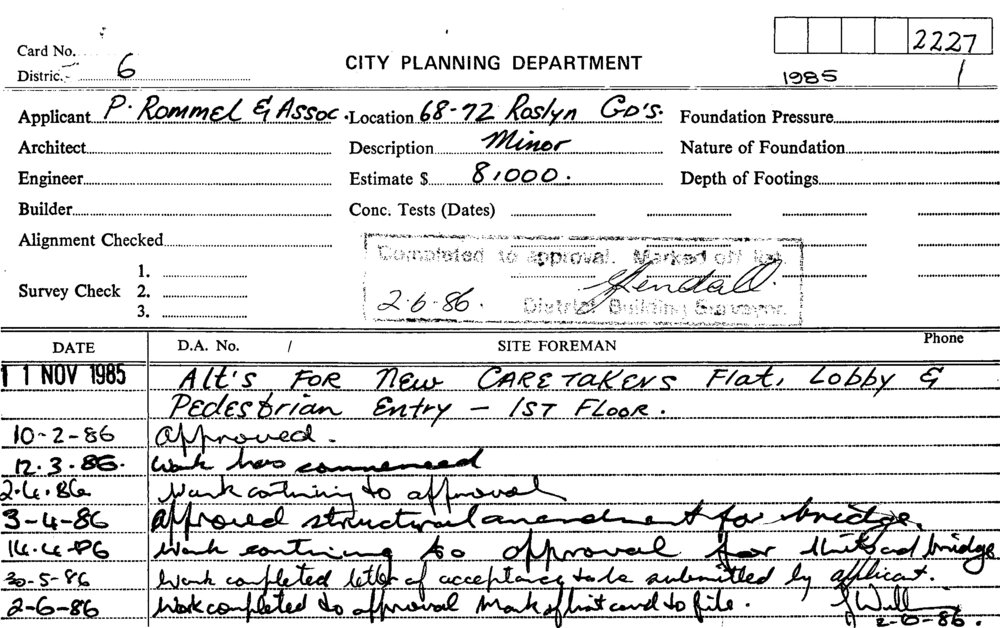 2227
Card No.
District 6
CITY PLANNING DEPARTMENT
1985 /
Applicant P. Rommel & Assoc. Location 68-72 Roslyn Gd's. Foundation Pressure
Architect Description Minor Nature of Foundation
Engineer Estimate $ 8,000. Depth of Footings
Builder Conc. Tests (Dates)
Alignment Checked
Completed to approval. Marked off list.
Survey Check 1.
2.
3.
2-6-86.
District Building Surveyor.
DATE D.A. No. / SITE FOREMAN Phone
11 NOV 1985 Alt's FOR New CARETAKERS Flat, Lobby &
PEDEStrian Entry - 1ST FLOOR.
10-2-86 Approved.
12.3.86. Work has commenced
2.4.86 Work continuing to approval
3-4-86 Approved structural amendment for bridge.
14.4.86 Work continuing to approval for Units and bridge
30-5-86 Work completed letter of acceptance to be submitted by applicant.
2-6-86 Work completed to approval Mark off list card to file.
2-6-86.